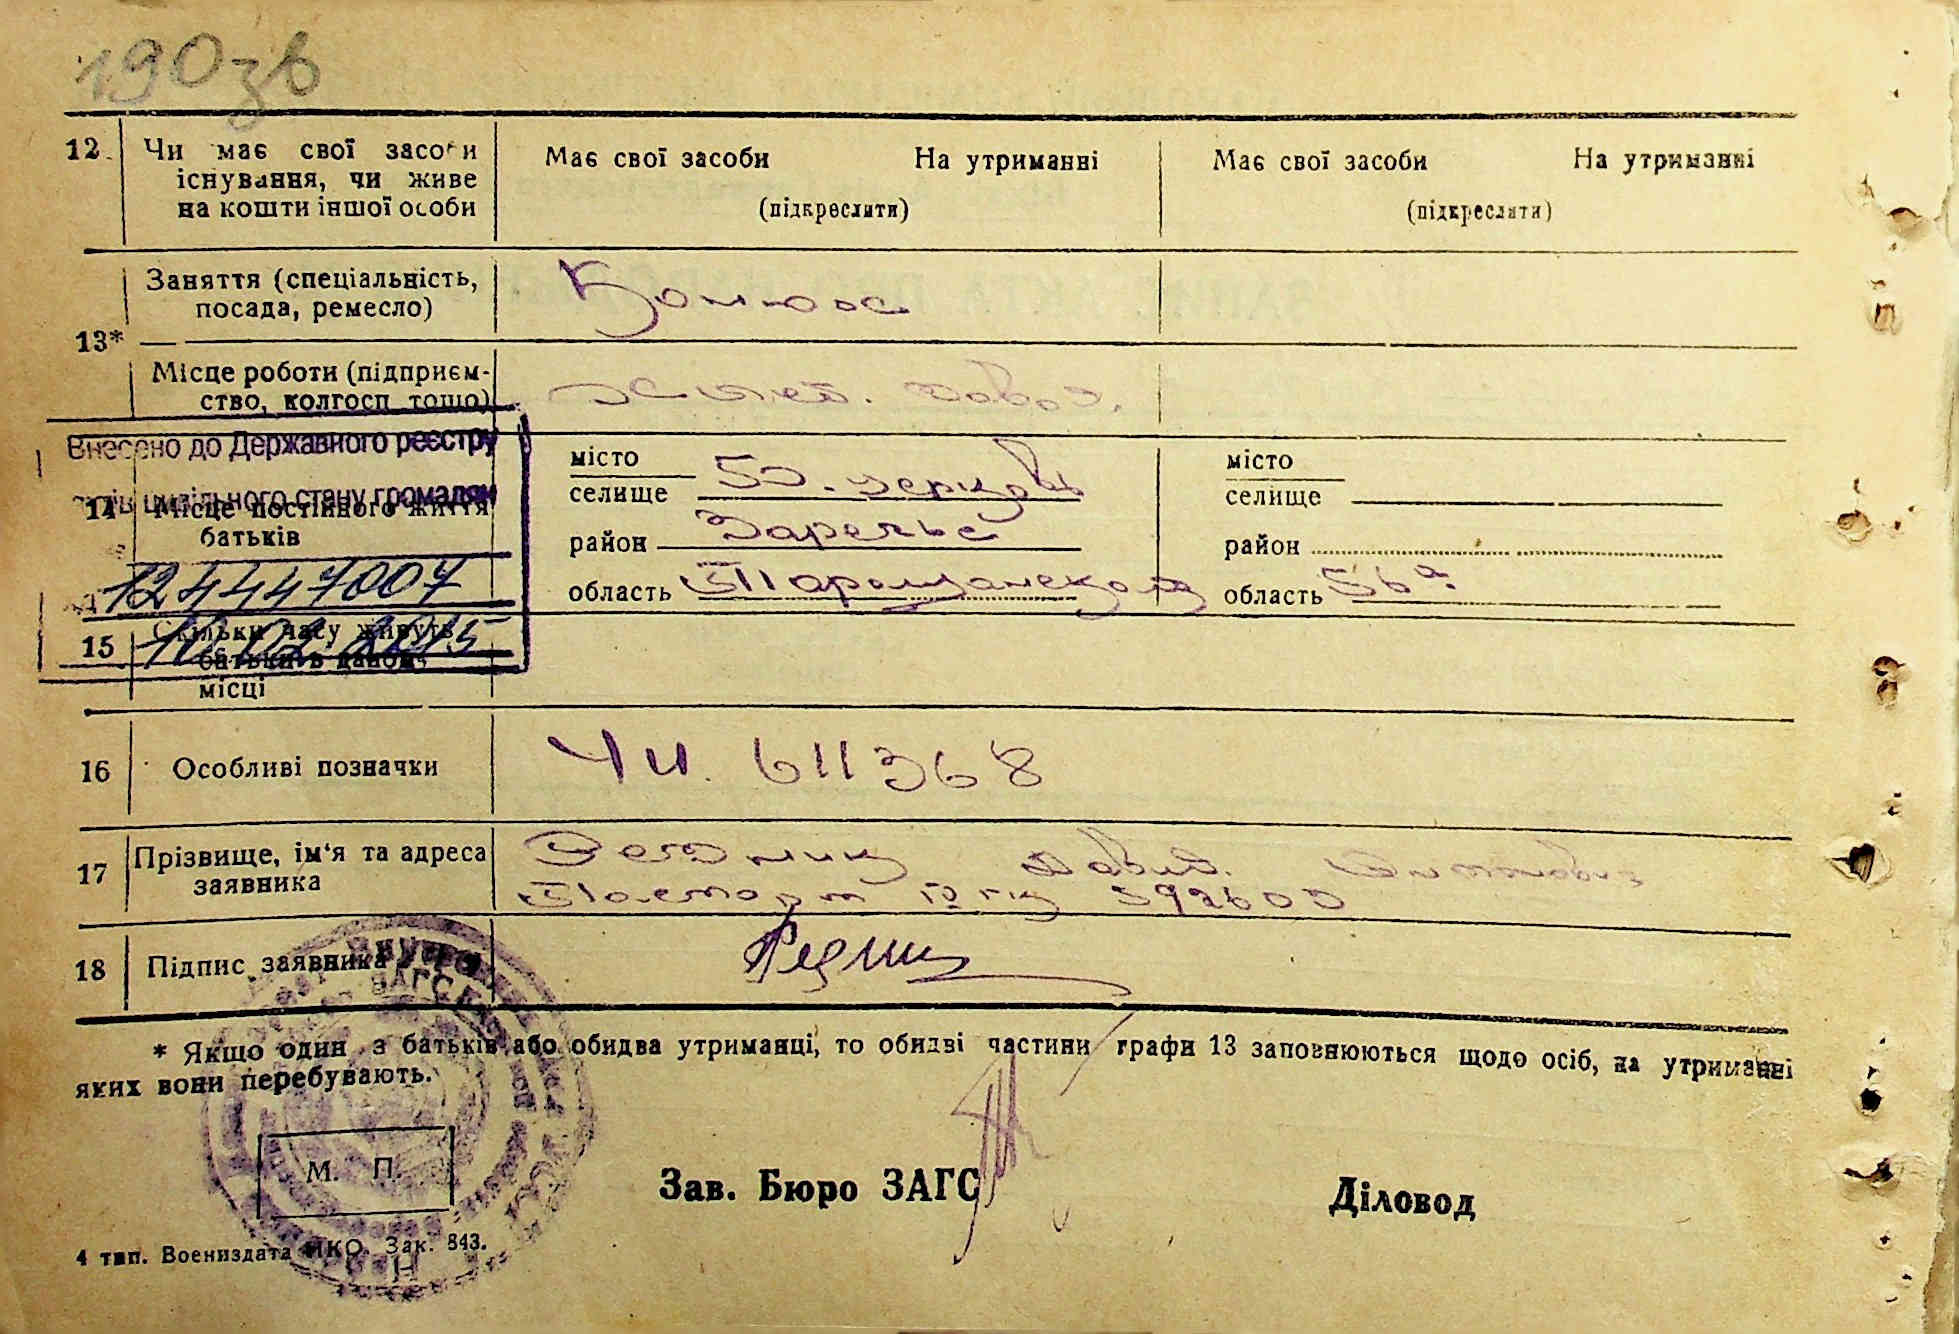 190зв
12 Чи має свої засоби Має свої засоби На утриманні Має свої засоби На утриманні
існування, чи живе
на кошти іншої особи (підкреслити) (підкреслити)
Заняття (спеціальність, Конюх
посада, ремесло)
13*
Місце роботи (підприєм-
ство, колгосп тощо)
Внесено до Державного реєстру
цивільного стану громадян
14 Місце постійного життя місто Б. церковь місто
батьків селище селище
район Заречье район
область Таращанская область 56а
124447007
15 Скільки часу живуть
батьки в даном
місці
16 Особливі позначки ЧИ. 611368
17 Прізвище, ім'я та адреса Давид.
заявника Паспорт 592600
18 Підпис заявника
* Якщо один з батьків або обидва утриманці, то обидві частини графи 13 заповнюються щодо осіб, на утриманні
яких вони перебувають.
М. П.
Зав. Бюро ЗАГС Діловод
4 тип. Воениздата НКО. Зак. 843.